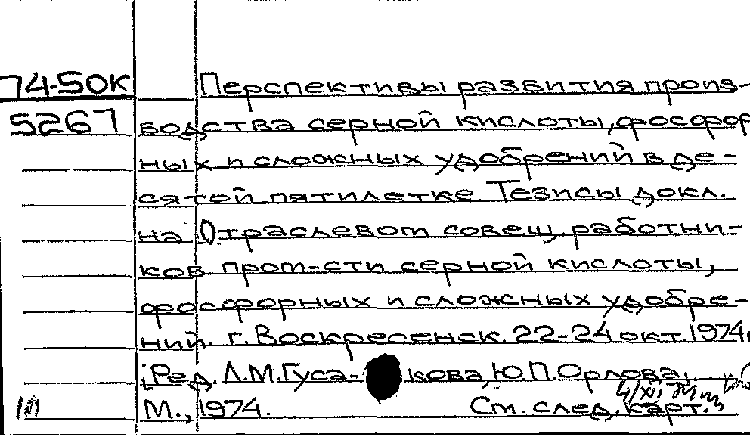 74-50К Перспективы развития произ-
5267 водства серной кислоты, фосфор
ных и сложных удобрений в де-
сятой пятилетке. Тезисы докл.
на Отраслевом совещ. работни-
ков пром-сти серной кислоты,
фосфорных и сложных удобре-
ний. г. Воскресенск. 22-24 окт. 1974.
[Ред. Л.М. Гуса-кова, Ю.П. Орлова.
М., 1974. См. след. карт.